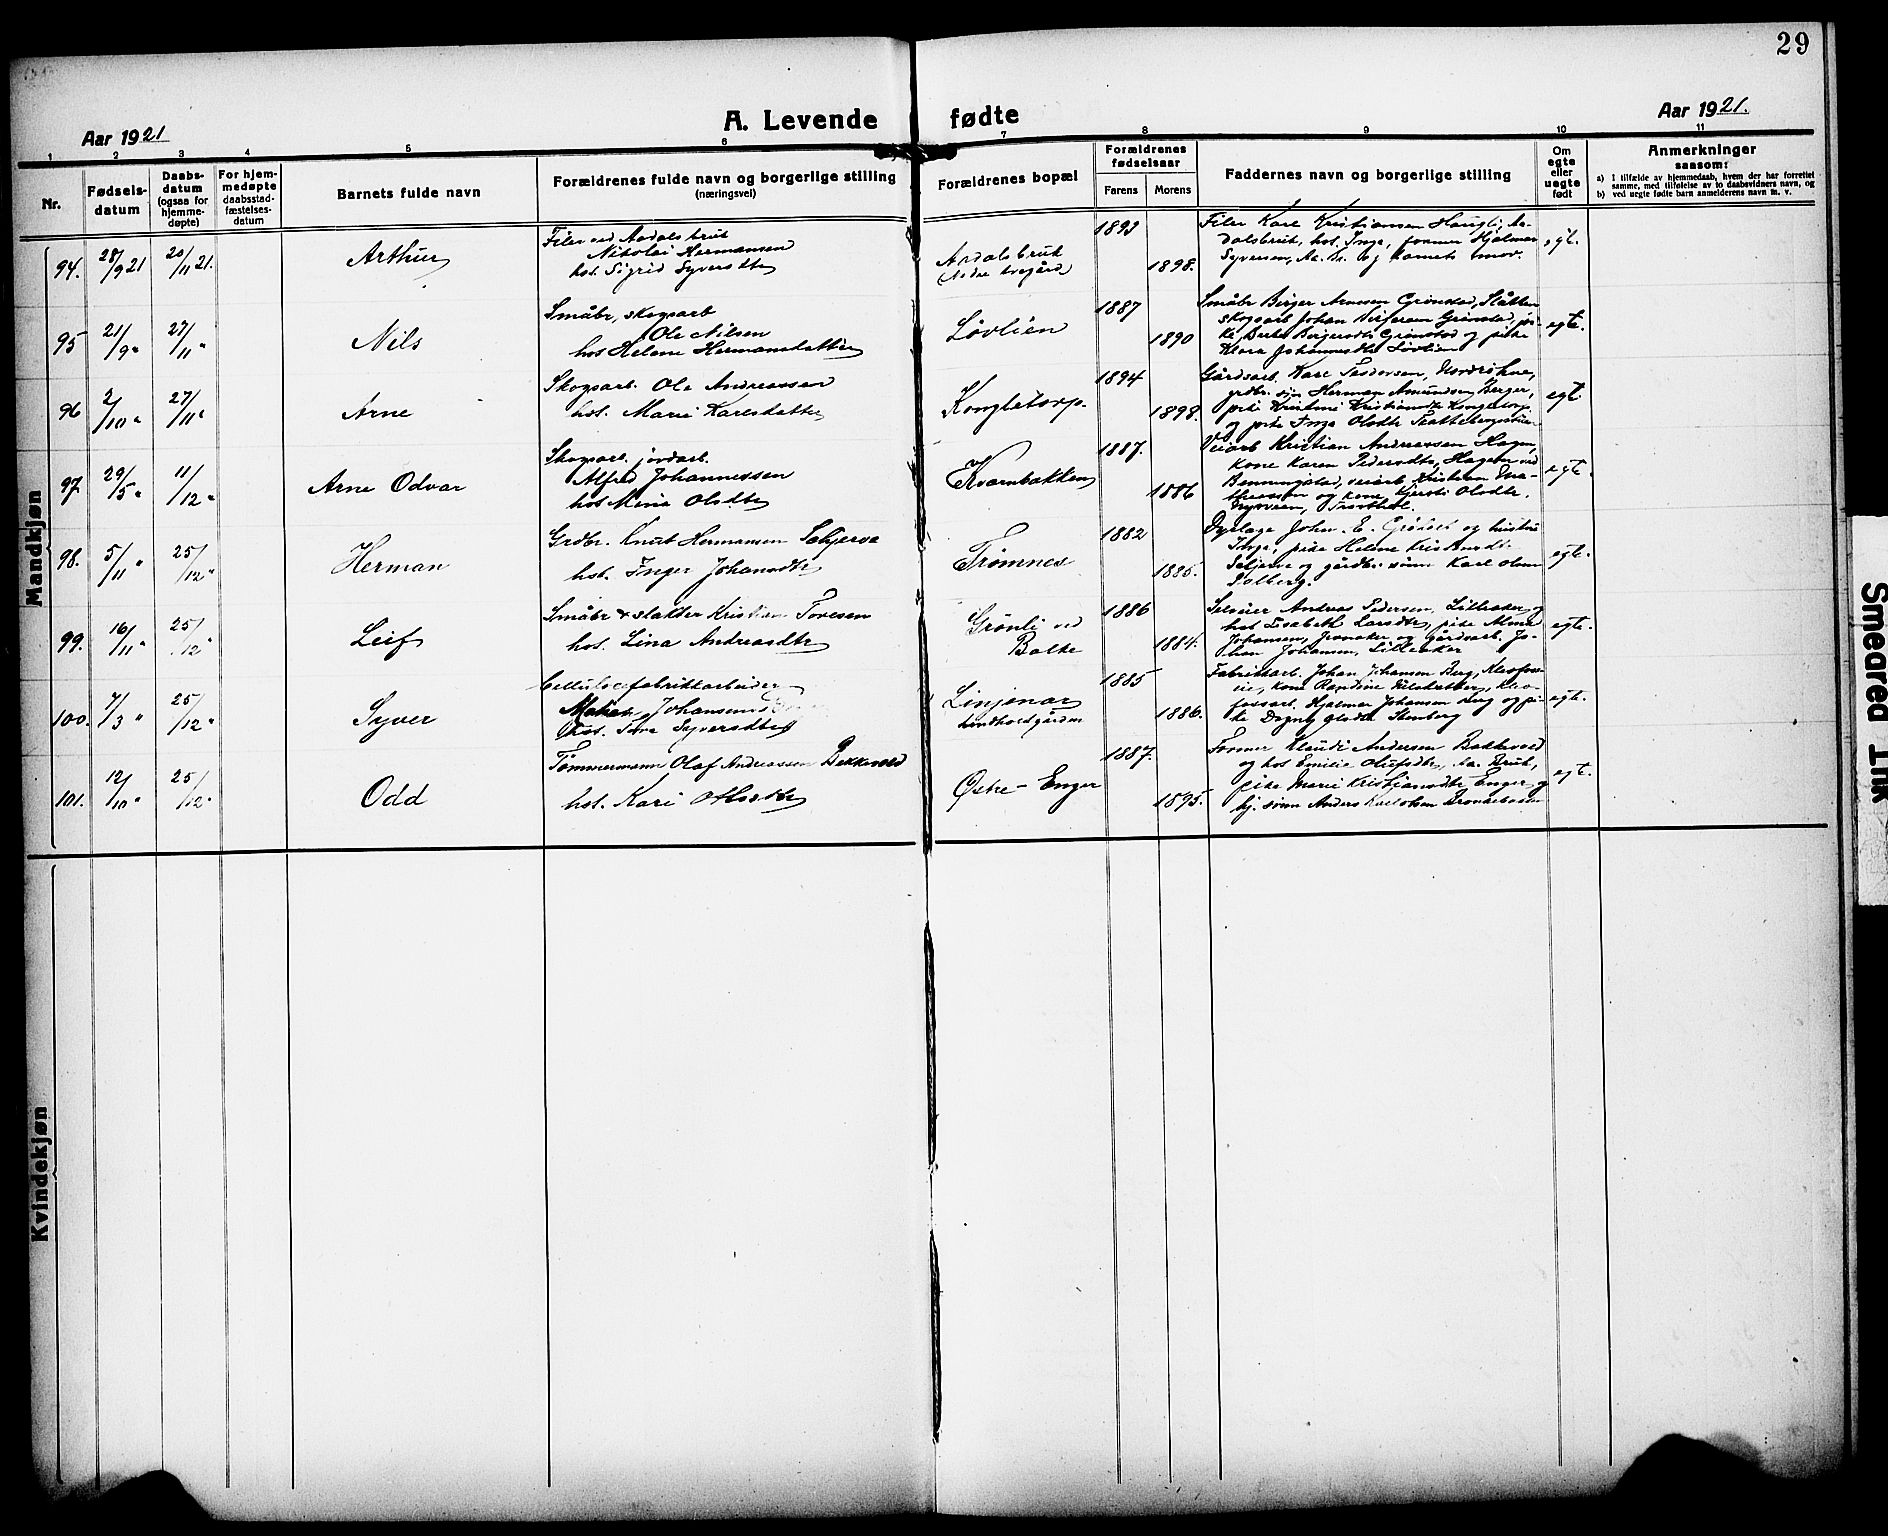 29
A. Levende fødte
Aar 1921
Aar 1921.
1 2 3 4 5 6 7 8 9 10 11
Nr.
Fødselsdatum
Daabsdatum (ogsaa for hjemmedøpte)
For hjemmedøpte daabsstadfæstelsesdatum
Barnets fulde navn
Forældrenes fulde navn og borgerlige stilling
(næringsvei)
Forældrenes bopæl
Forældrenes fødselsaar
Farens
Morens
Faddernes navn og borgerlige stilling
Om egte eller uegte født
Anmerkninger
saasom:
a) I tilfælde av hjemmedaab, hvem der har forrettet samme, med tilføielse av to daabsvidners navn, og
b) ved uegte fødte barn anmelderens navn m. v.
Mandkjøn
94. 28/9 21 20/11 21. Arthur
Filer ved Aadalsbruk
Nikolai Hermansen
hst. Sigrid Syversdtr
Aadalsbruk
1893
1898.
Filer Kare Kristiansen Haugli, Aa-
dalsbruk, hst. Inga, former Hjalmar
Syversen, Aa. Br. og barnets mor.
egt.
95 21/9 " 27/11 " Nils
Småbr, skogsarb
Ole Nilsen
hos Helene Hermansdatter
Løvlien
1887
1890
Småbr Birger Arnesen Grønstad, Slåtten
skogsarb Johan Birgersen Grønstad, pi-
ke Berte Birgersdtr Grønstad og pike
Klara Johannesdtr Løvlien
egte.
96 2/10 " 27/11 " Arne
Skogsarb. Ole Andreassen
hst. Marie Karlsdatter
Kongletorp.
1894
1898.
Gårdsarb. Kare
grdbr. søn Herman Amundsen Berger,
pike Kristine Kristiansdtr Kongletorp
og pike Inga Olsdtr
egt.
97. 29/5 " 11/12 " Arne Odvar
Skogsarb. jordarb.
Alfred Johannessen
hst Mina Olsdtr
Kvarnbakken
1887.
1886
Veiarb Kristian Andreassen Hagen,
kone Karen Pedersdtr, Hagen ved
Benningstad, veiarb Kristian
og kone, Kjersti Olsdtr.
egte.
98. 5/11 " 25/12 " Herman
Grdbr. Knut Hermansen Seljerve
hst. Inger Johansdtr
Trømnes
1882
1885.
Dyrlæge John. E. Grønset og hustru
Inga, pike Helene Kristiansdt.
Seljerve og gårdbr. sønn Karl Olsen
Solberg.
egte.
99. 16/11 " 25/12 " Leif
Småbr & slakter Kristian Toresen
hst. Lina Andreasdtr
Grønli ved
Balke
1886
1884.
Selveier Andreas Pedersen, Lilleaker og
hst Elsabeth Larsdtr, pike Alma
Johansen, og gårdsarb. Jo-
han Johansen, Lilleaker
egte.
100. 7/3 " 25/12 " Syver
Cellulosefabrikkarbeider
Johansen
hst. Syversdtr
Linjonar
1885
1886.
Fabrikkarb. Johan Johansen Berg, Klevfos-
veie, kone Randine Klev-
fossarb. Hjalmar Johansen Berg og pi-
ke Dagny Olsdtr Stenberg
egte.
101. 12/10 " 25/12 " Odd
Tømmermann Olaf Andreassen Bekkevold
hst. Kari
Østre-Enger
1887.
1895.
Former Klaudi Andersen Bakkevold
og hos Emilie Olufsdtr, Aa. Bruk,
pike Marie Kristiansdtr Enger og
gj. sønn Anders Karlolsen
egt.
Kvindekjøn
Smeared Ink